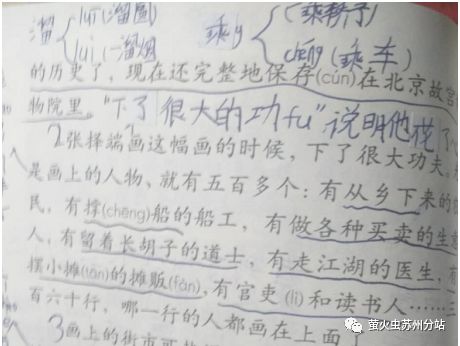 溜 liū(溜圈
liù(一溜烟
乘 (乘轿子)
chéng(乘车)
的历史了,现在还完整地保存(cún)在北京故宫
物院里。"下了很大的功fu"说明他花了
2张择端画这幅画的时候,下了很大功夫。
是画上的人物、就有五百多个:有从乡下来的
民,有撑(chēng)船的船工,有做各种买卖的生意
人,有留着长胡子的道士,有走江湖的医生,有
摆小摊(tān)的摊贩(fàn),有官吏(lì)和读书人……三
百六十行,哪一行的人都画在上面了
3画上的街市可
萤火虫苏州分站